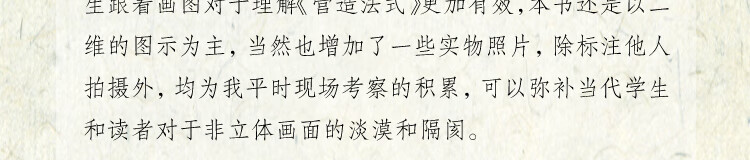 生跟着画图对于理解《营造法式》更加有效，本书还是以二
维的图示为主，当然也增加了一些实物照片，除标注他人
拍摄外，均为我平时现场考察的积累，可以弥补当代学生
和读者对于非立体画面的淡漠和隔阂。